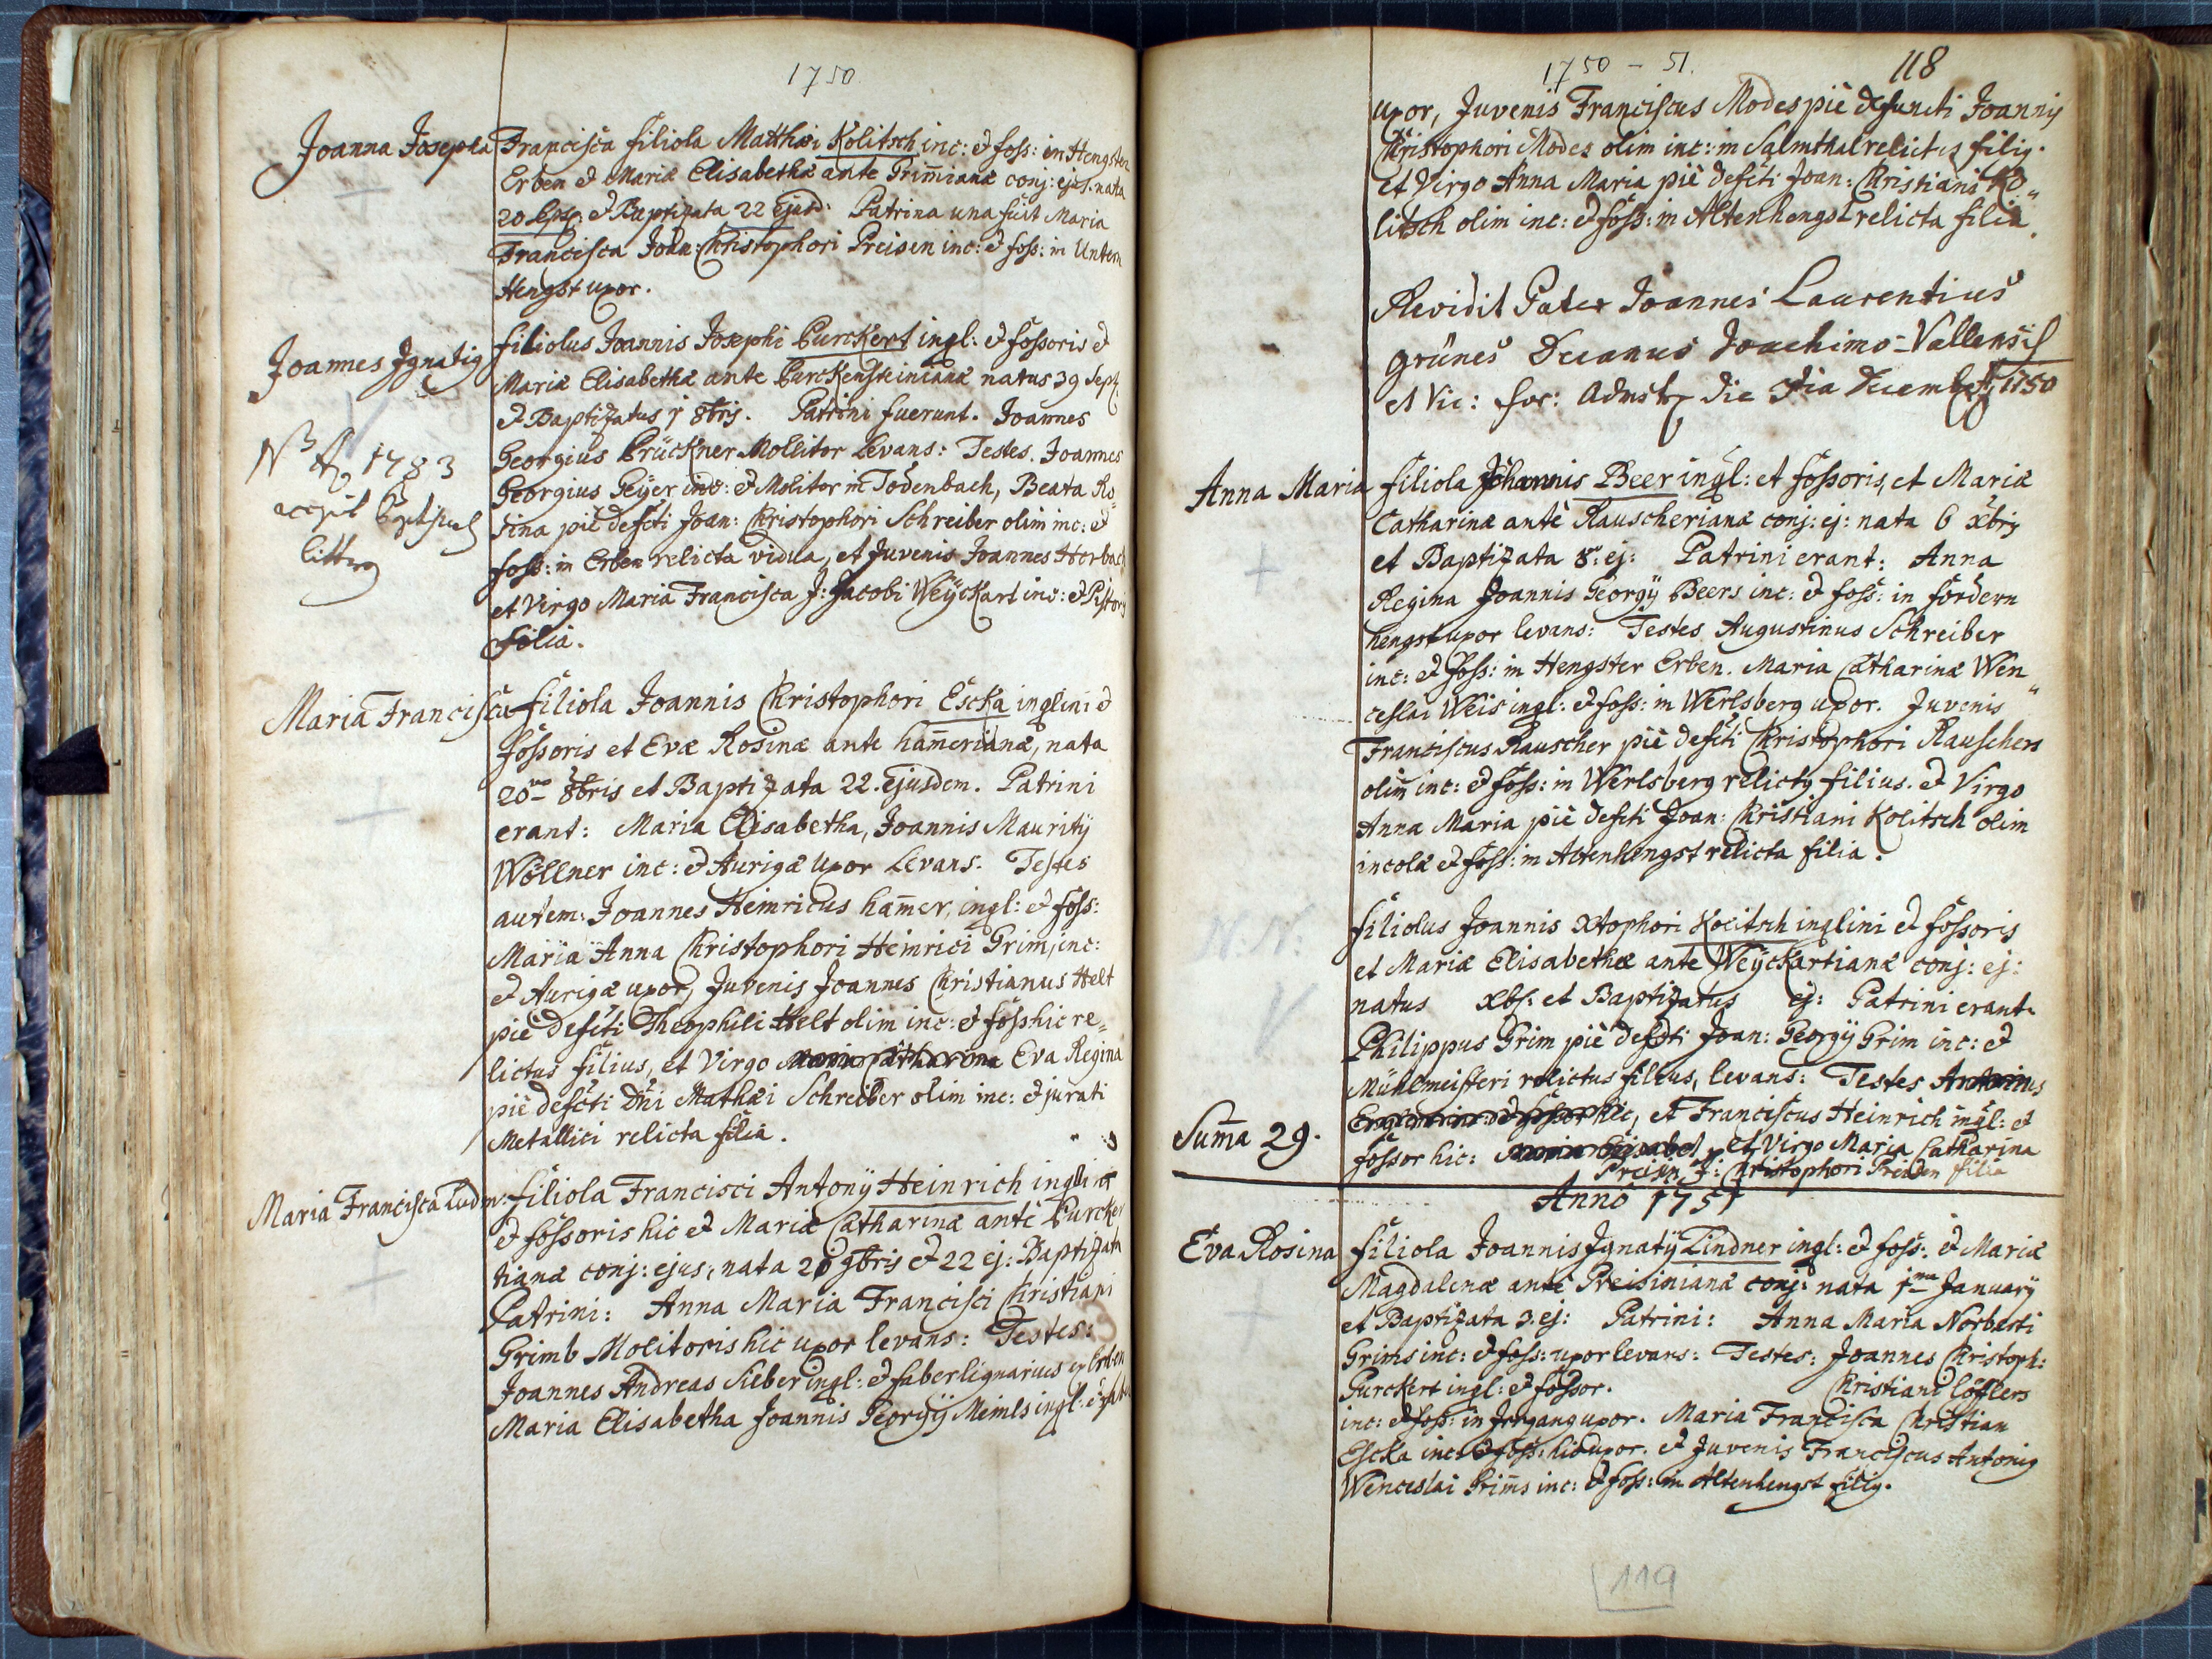 1750.
Joanna Josepha Francisca filiola Matthæi Kolitsch inc: & foss: in Hengster
Erben & Mariæ Elisabethæ ante Grim̄ianæ conj: ejus. nata
20 & Baptizata 22 Ejusd: Patrina una fuit Maria
Francisca Joan: Christophori Preisen inc: & foss: in Untern
Hengst uxor.
Joannes Ignatig filiolus Joannis Josephi Purckert ingl: & fossoris &
Mariæ Elisabethæ ante Purckensteinianæ natus 39 Sept:
& Baptizatus 1 8bris. Patrini fuerunt. Joannes
Georgius Prückner Mollitor Levans: Testes. Joannes
Georgius Geÿer inc: & Molitor in Todenbach, Beata Ro„
sina piè defcti Joan: Christophori Schreiber olim inc: &
foss: in Erben relicta vidua, et Juvenis Joannes Horbach
et Virgo Maria Francisca J: Jacobi Weÿckart inc: & Pistoris
filia.
NB Ao 1783
accepit
litteras
Maria Francisca filiola Joannis Christophori Escka inqlini &
fossoris et Evæ Rosinæ ante ham̄erianæ, nata
20mo 8bris et Baptizata 22. Ejusdem. Patrini
erant: Maria Elisabetha, Joannis Mauritÿ
Wöllner inc: & Aurigæ Uxor Levans. Testes
autem: Joannes Heinricus ham̄er, ingl: & foss:
Maria Anna Christophori Heinrici Grim, inc:
& Aurigæ uxor, Juvenis Joannes Christianus Helt
piè defcti Theophili Helt olim inc: & foss hic re„
lictus filius, et Virgo Maria Catharina Eva Regina
piè defcti Dn̄i Mathæi Schreiber olim inc: & jurati
Metallici relicta filia.
Maria Francisca Ludm: filiola Francisci Antonÿ Heinrich inqlini
& fossoris hic & Mariæ Catharinæ antè Purcker
tianæ conj: ejus, nata 20 9bris & 22 ej: Baptizata
Patrini: Anna Maria Francisci Christiani
Grimb Molitoris hic uxor levans: Testes:
Joannes Andreas Sieber ingl: & faber lignarius ex Erben
Maria Elisabetha Joannis Georgÿ Meinls ingl:
1750 - 51.
118
uxor, Juvenis Franciscus Modes piè defuncti Joannis
Christophori Modes olim inc: in Salmthal relictus filig.
et Virgo Anna Maria piè defcti Joan: Christiani Ko„
litsch olim inc: & foss: in Altenhengst relicta filia.
Revidit Pater Joannes Laurentius
Grünes Decanus Joachimo-Vallensis
et Vic: for: Admstr die Decembris 1750
Anna Maria filiola Johannis Beer ingl: et fossoris, et Mariæ
Catharinæ antè Rauscherianæ conj: ej: nata 6 xbris
et Baptizata 8. ej: Patrini erant: Anna
Regina Joannis Georgÿ Beers inc: & foss: in fördern
hengst uxor levans: Testes Augustinus Schreiber
inc: & foss: in Hengster Erben. Maria Catharina Wen„
ceslai Weis ingl: & foss: in Werlsberg uxor. Juvenis
Franciscus Rauscher piè defcti Christophori Rauschers
olim̄ inc: & foss: in Werlsberg relictg filius. & Virgo
Anna Maria piè defcti Joan: Christiani Kolitsch olim
incolæ & foss: in Altenhengst relicta filia.
N: N:
filiolus Joannis Xtophori Kolitsch inqlini & fossoris
et Mariæ Elisabethæ ante Weÿckartianæ conj: ej:
natus xbs: et Baptizatus ej: Patrini erant.
Philippus Grim piè defcti Joan: Georgÿ Grim inc: &
Mühlmeisteri relictus filius, levans: Testes Antonius
hic, et Franciscus Heinrich ingl: et
Sum̄a 29. fossor hic: Maria Elisabet et Virgo Maria Catharina
Preisin J: Christophori Preisen filia
Anno 1751
Eva Rosina filiola Joannis Ignatÿ Lindner ingl: & foss: & Mariæ
Magdalenæ antè Preisinianæ conj: nata 1ma Januarÿ
et Baptizata 3. ej: Patrini: Anna Maria Norberti
Grims inc: & foss: uxor levans: Testes: Joannes Christoph:
Purckert ingl: & fossor. Christiani Löfflers
inc: & foss: in Irrgang uxor. Maria Francisca Christian
Escka inc: & foss: hic uxor. & Juvenis Franciscus Antonig
Wenceslai Grim̄s inc: & foss: in Altenhengst filig.
119